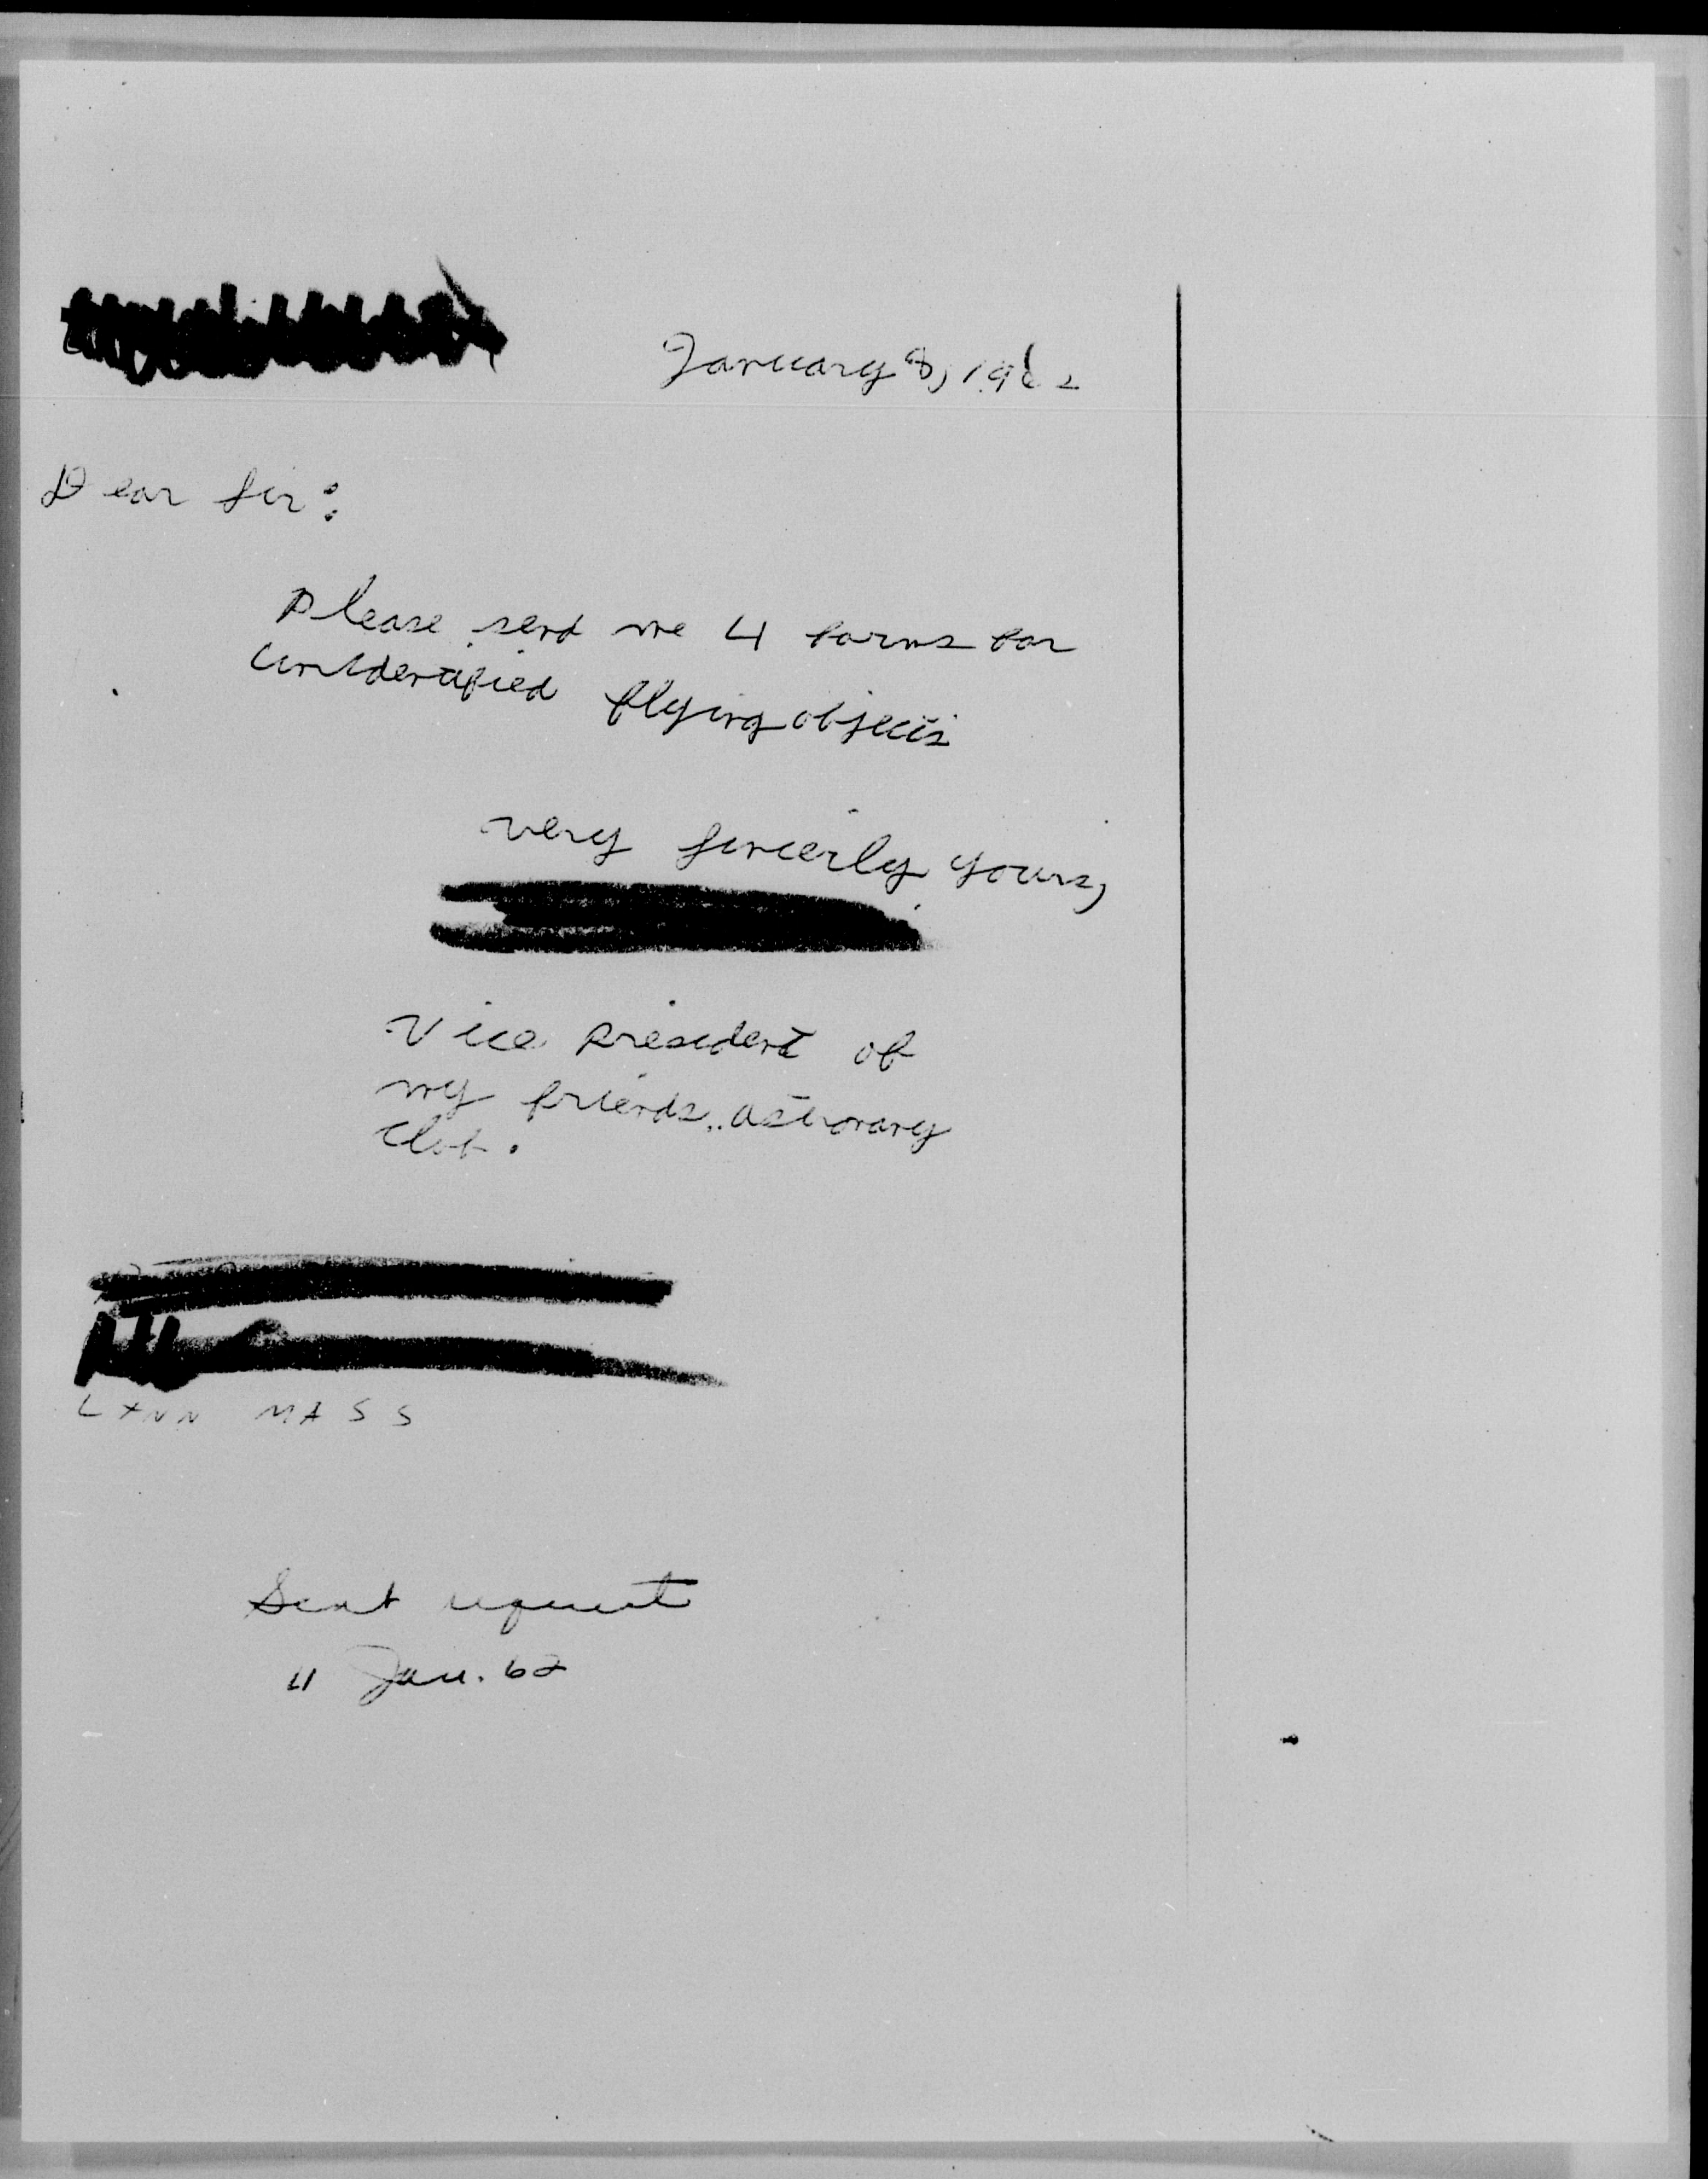 January 8, 1962
Dear Sir:
Please send me 4 forms for
unidentified flying objects
very sincerly yours,
Vice president of
my friends astronany
club.
LYNN MASS
Sent request
11 Jan. 62